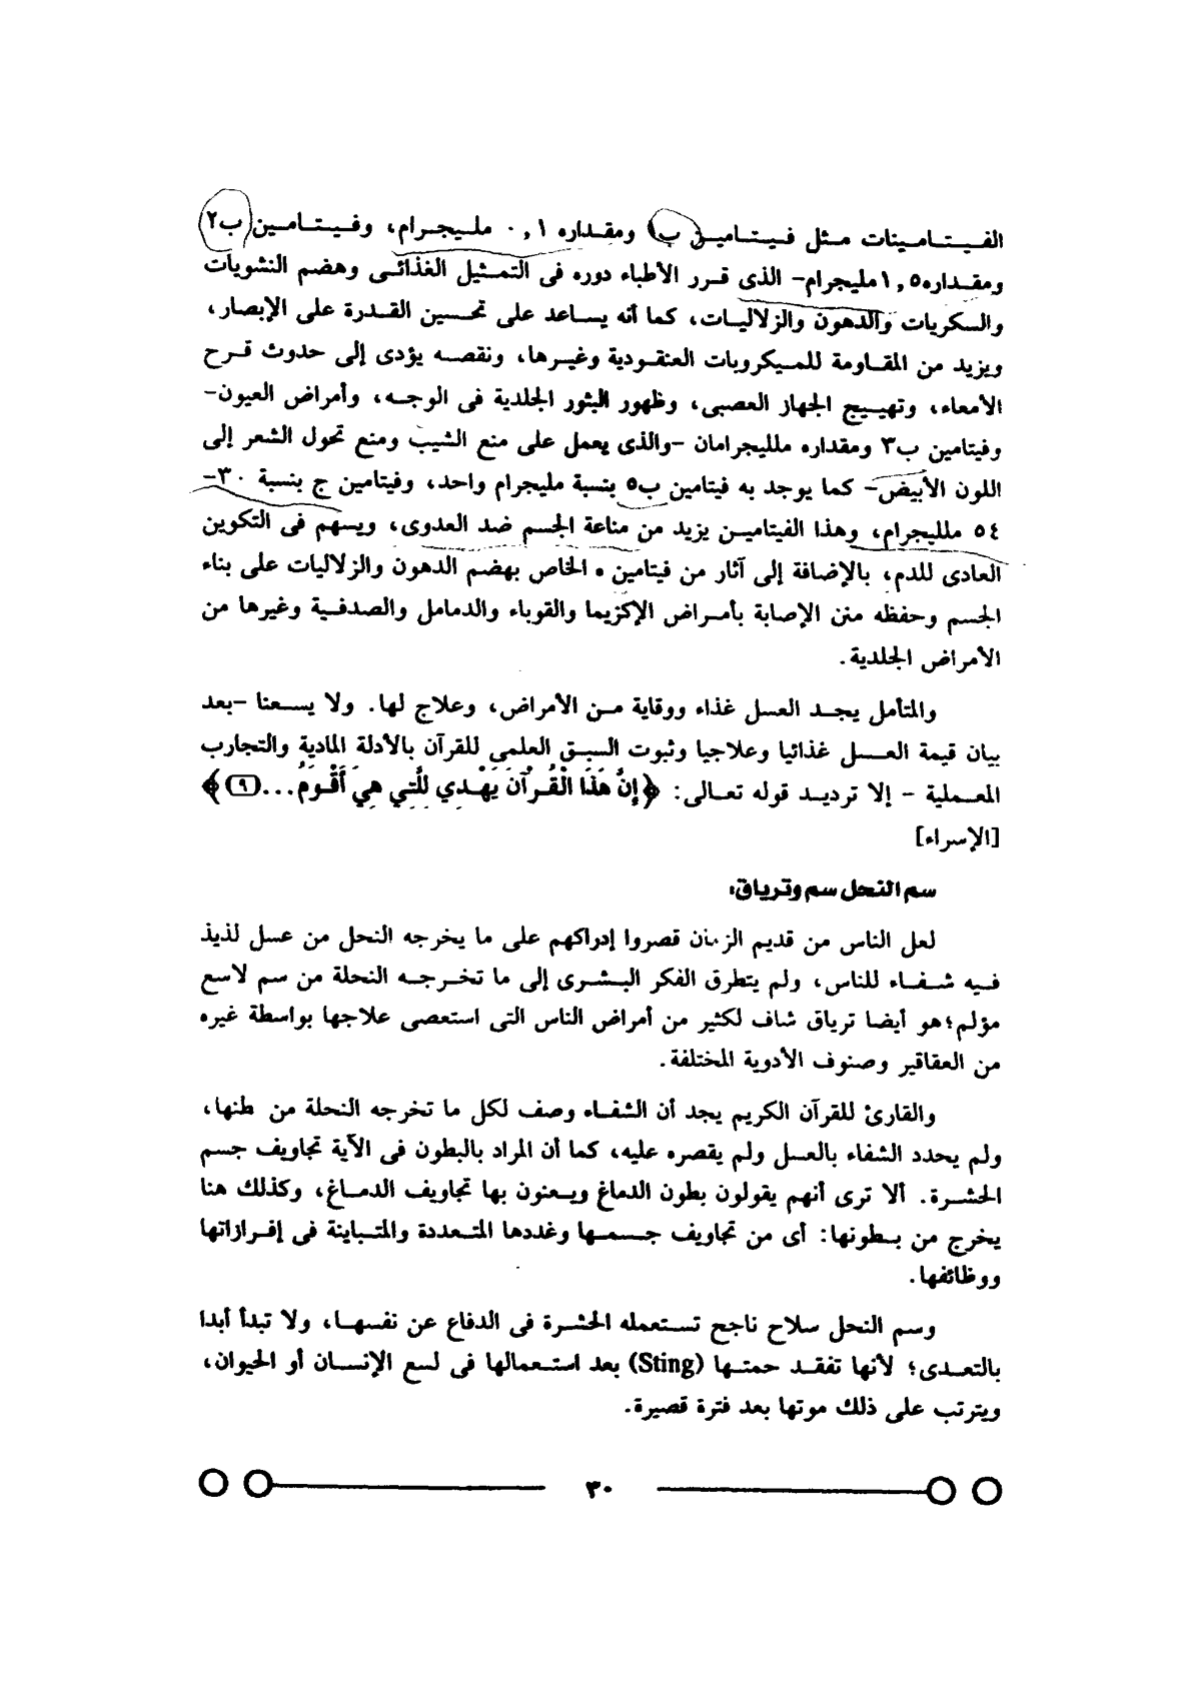 الفيتامينات مثل فيتامين ب١ ومقداره ٠,١ مليجرام، وفيتامين ب٢
ومقداره ١,٥ مليجرام- الذى قرر الأطباء دوره فى التمثيل الغذائى وهضم النشويات
والسكريات والدهون والزلاليات، كما أنه يساعد على تحسين القدرة على الإبصار،
ويزيد من المقاومة للميكروبات العنقودية وغيرها، ونقصه يؤدى إلى حدوث قرح
الأمعاء، وتهييج الجهاز العصبى، وظهور البثور الجلدية فى الوجه، وأمراض العيون-
وفيتامين ب٣ ومقداره ملليجرامان -والذى يعمل على منع الشيب ومنع تحول الشعر إلى
اللون الأبيض- كما يوجد به فيتامين ب٥ بنسبة مليجرام واحد، وفيتامين ج بنسبة ٣٠-
٥٤ ملليجرام، وهذا الفيتامين يزيد من مناعة الجسم ضد العدوى، ويسهم فى التكوين
العادى للدم، بالإضافة إلى آثار من فيتامين ه الخاص بهضم الدهون والزلاليات على بناء
الجسم وحفظه من الإصابة بأمراض الإكزيما والقوباء والدمامل والصدفية وغيرها من
الأمراض الجلدية.
والمتأمل يجد العسل غذاء ووقاية من الأمراض، وعلاج لها. ولا يسعنا -بعد
بيان قيمة العسل غذائيا وعلاجيا وثبوت السبق العلمى للقرآن بالأدلة المادية والتجارب
المعملية - إلا ترديد قوله تعالى: ﴿إِنَّ هَذَا الْقُرْآنَ يَهْدِي لِلَّتِي هِيَ أَقْوَمُ...(٩)﴾
[الإسراء]
سم النحل سم وترياق:
لعل الناس من قديم الزمان قصروا إدراكهم على ما يخرجه النحل من عسل لذيذ
فيه شفاء للناس، ولم يتطرق الفكر البشرى إلى ما تخرجه النحلة من سم لاسع
مؤلم؛هو أيضا ترياق شاف لكثير من أمراض الناس التى استعصى علاجها بواسطة غيره
من العقاقير وصنوف الأدوية المختلفة.
والقارئ للقرآن الكريم يجد أن الشفاء وصف لكل ما تخرجه النحلة من طنها،
ولم يحدد الشفاء بالعسل ولم يقصره عليه، كما أن المراد بالبطون فى الآية تجاويف جسم
الحشرة. ألا ترى أنهم يقولون بطون الدماغ ويعنون بها تجاويف الدماغ، وكذلك هنا
يخرج من بطونها: أى من تجاويف جسمها وغددها المتعددة والمتباينة فى إفرازاتها
ووظائفها.
وسم النحل سلاح ناجح تستعمله الحشرة فى الدفاع عن نفسها، ولا تبدأ أبدا
بالتعدى؛ لأنها تفقد حمتها (Sting) بعد استعمالها فى لسع الإنسان أو الحيوان،
ويترتب على ذلك موتها بعد فترة قصيرة.
٣٠